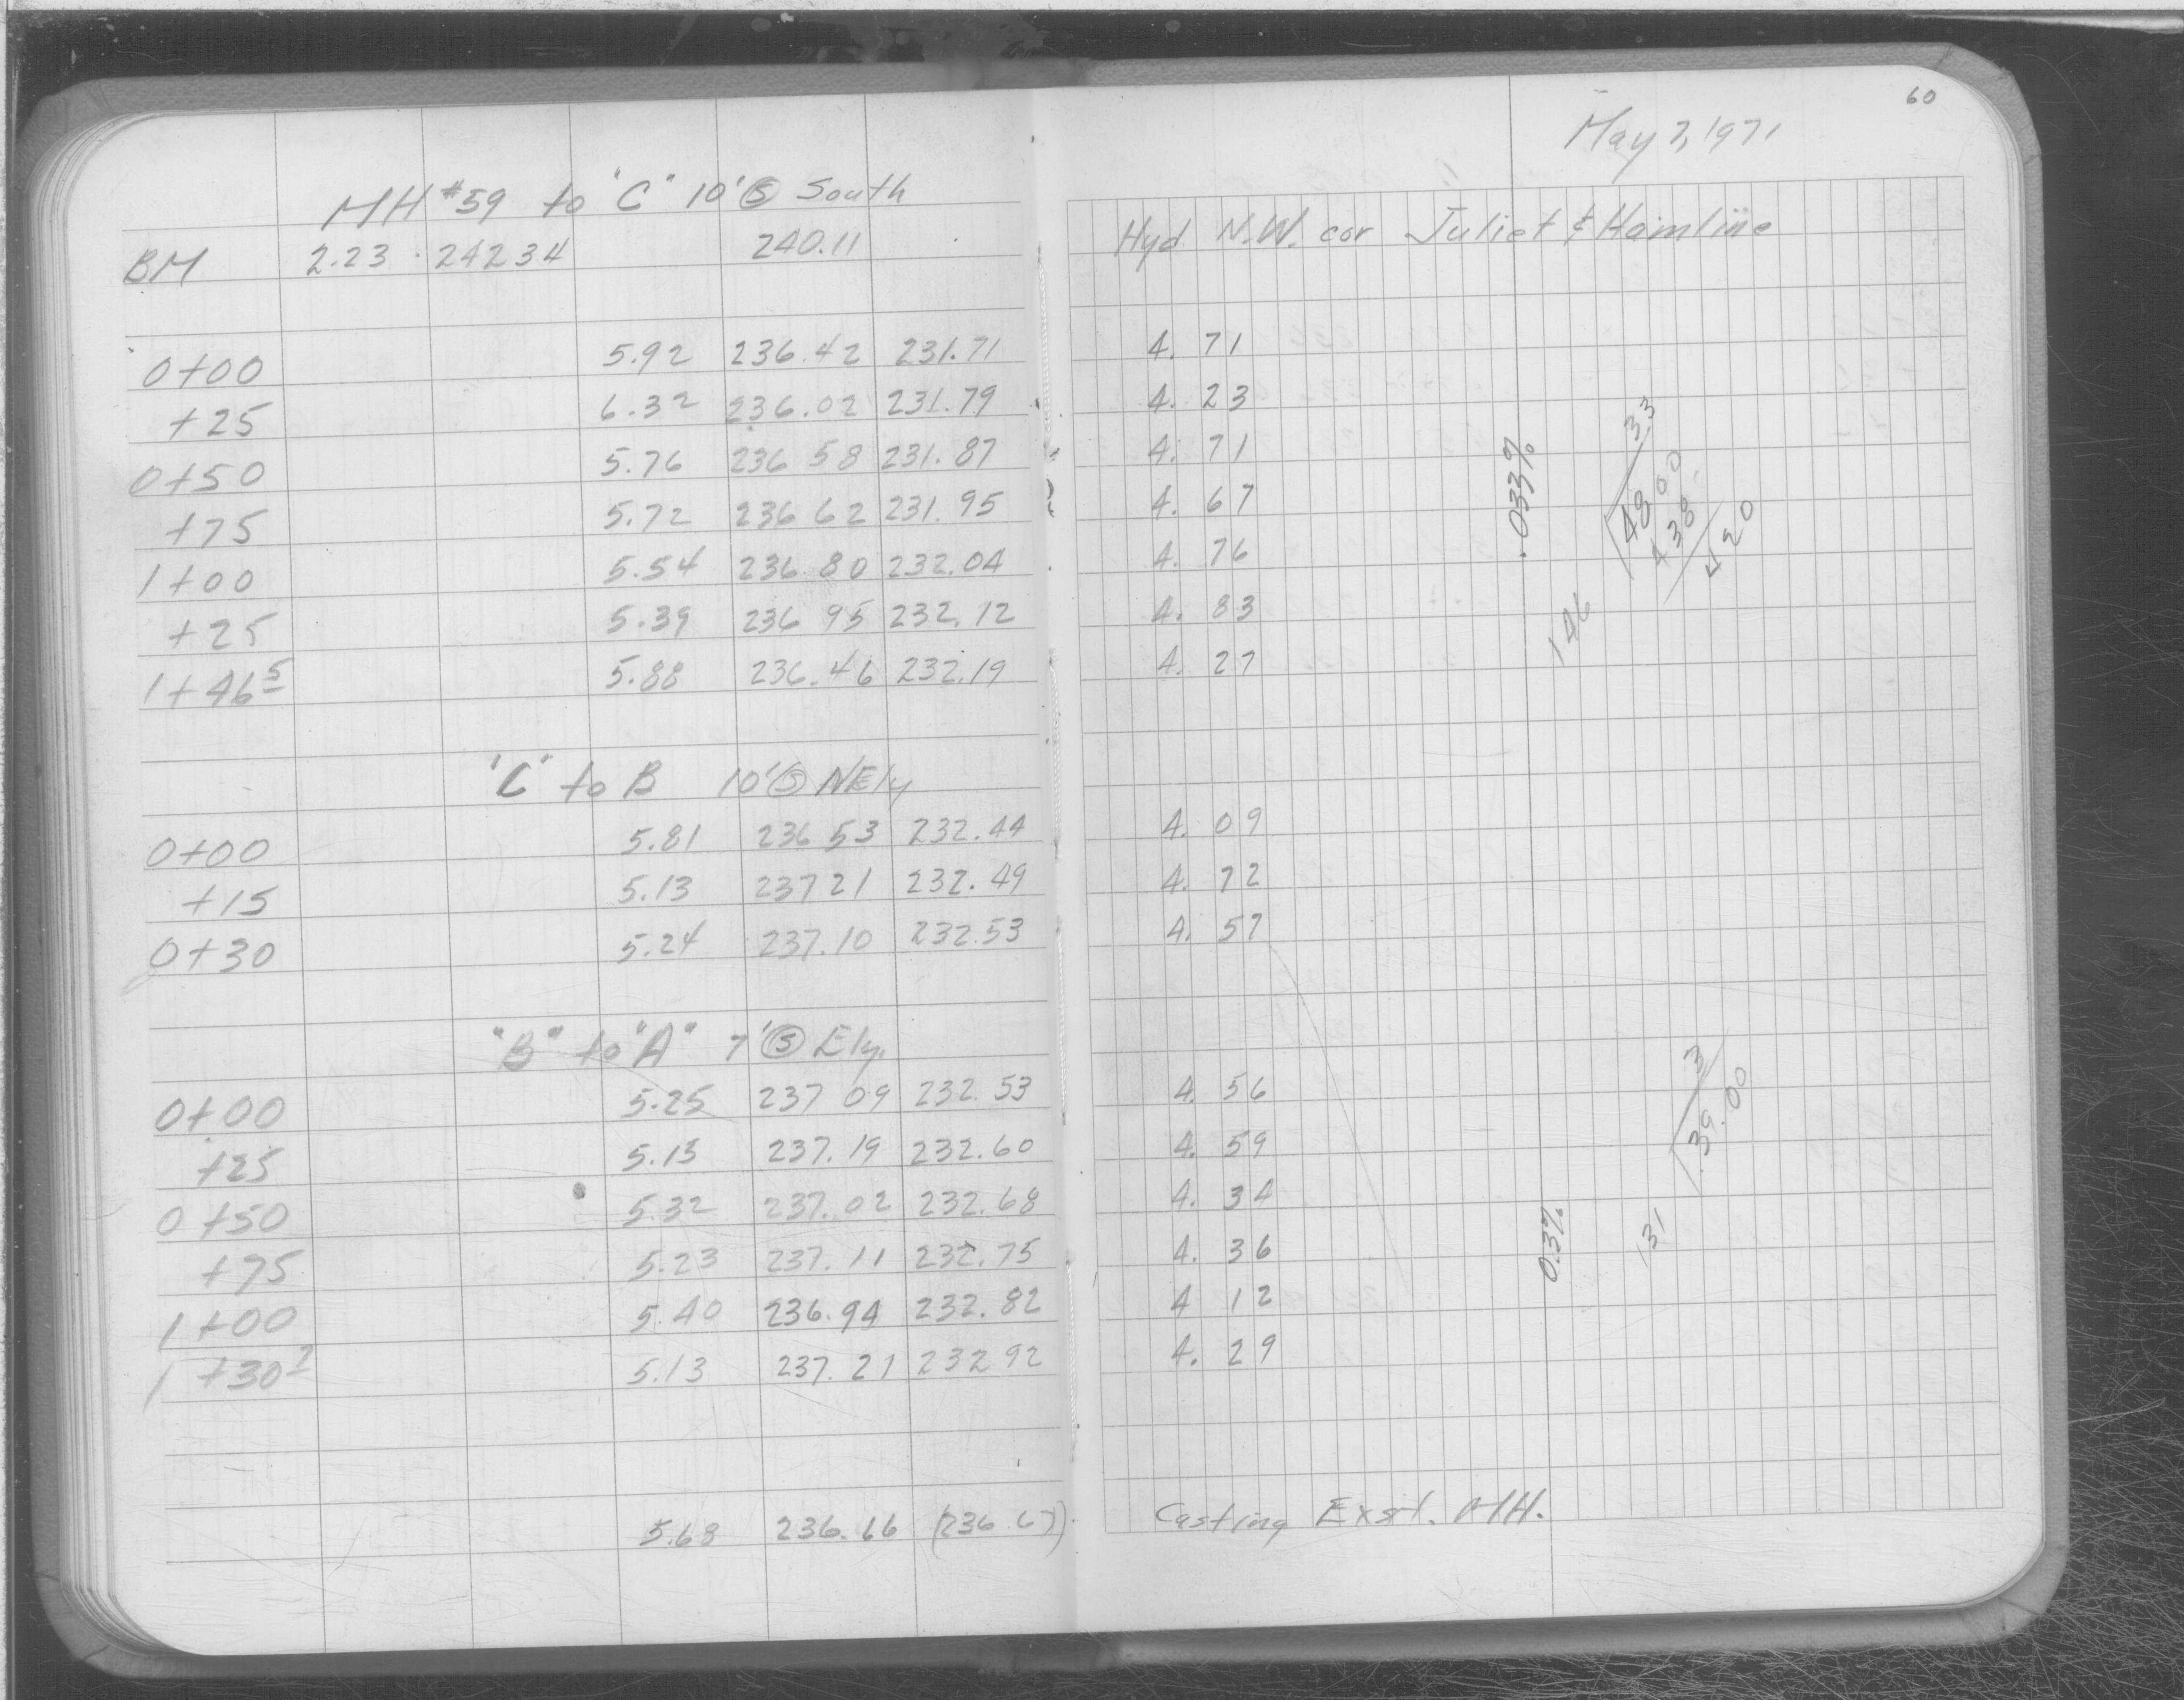 60
May 7, 1971
MH #59 to "C" 10' Ⓢ South
BM 2.23 242 34 240.11 Hyd N.W. cor Juliet & Hamline
0+00 5.92 236.42 231.71 4. 71
+25 6.32 236.02 231.79 4. 23
0+50 5.76 236 58 231.87 4. 71
+75 5.72 236 62 231.95 4. 67
1+00 5.54 236.80 232.04 4. 76
+25 5.39 236 95 232.12 4. 83
1+46 5 5.88 236.46 232.19 4. 27
.033%
33
146 48 00
438
20
"C" to B 10' Ⓢ NEly
0+00 5.81 236 53 232.44 4. 09
+15 5.13 237 21 232.49 4. 72
0+30 5.24 237.10 232.53 4. 57
"B" to "A" 7' Ⓢ Ely.
0+00 5.25 237 09 232.53 4. 56
+25 5.15 237.19 232.60 4. 59
0+50 5.32 237.02 232.68 4. 34
+75 5.23 237.11 232.75 4. 36
1+00 5.40 236.94 232.82 4 12
1+30 7 5.13 237.21 232 92 4. 29
0.3%
3
131 39.00
5.68 236.66 (236.67) Casting Exst. MH.